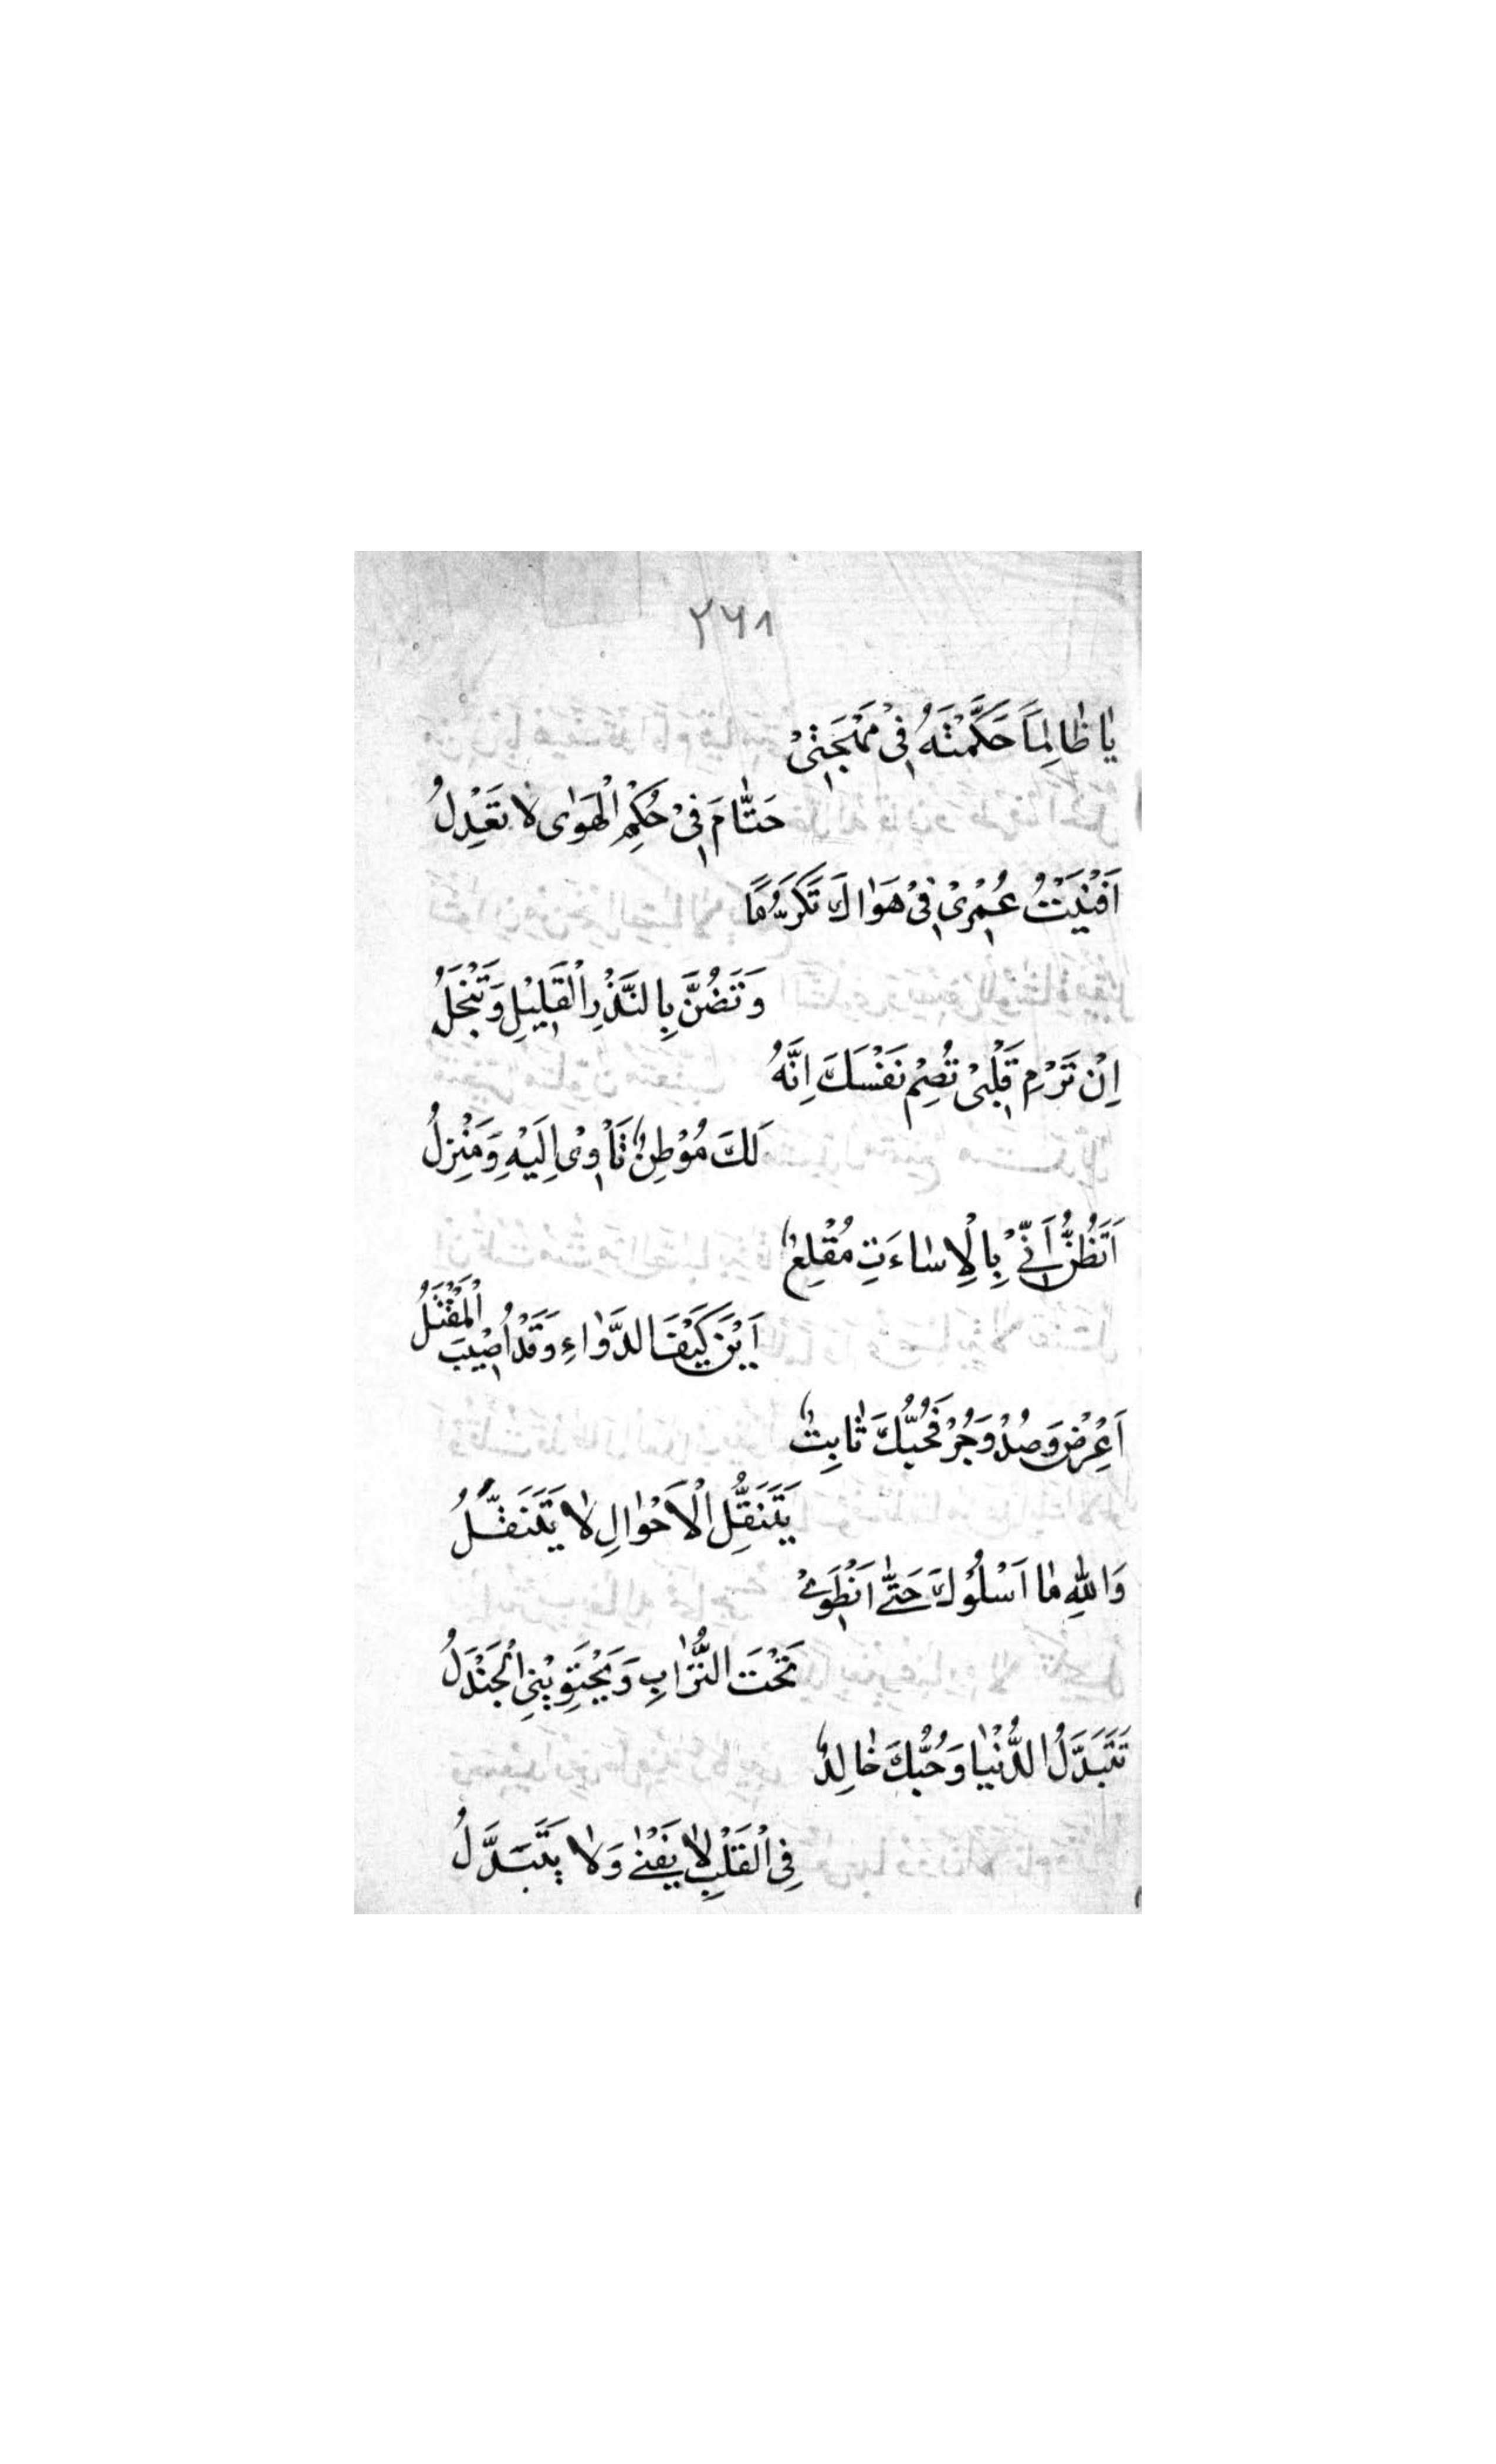 ۲۶۸
يٰا ظٰالِمَاً حَكَّمْتَهُ فِىْ مُهْجَتِىْ
حَتّٰامَ فِىْ حُكِمْ الْهَوٰى لا تَعْدِلُ
اَفْنَيْتُ عُمْرِىْ فِىْ هَوٰاكَ تَكَرُّمَاً
وَتَضُنَّ بِالنَّذْرِ الْقَلِيْلِ وَتَبْخَلُ
اِنْ تَرْمِ قَلْبِىْ تُصِمْ نَفْسَكَ اِنَّهُ
لَكَ مُوْطِنٌ تَأْوِىْ اِلَيْهِ وَمَنْزِلُ
اَتَظُنُّ اَنِّىْ بِالْاِسٰاءَتِ مُقْلِعٌ
اَيْنَ كَيْفَ الدَّوٰاءِ وَقَدْ اُصِيْبَ الْمَقْتَلُ
اَعْرِضْ وَصُدْ وَجُرْ فَحُبُّكَ ثٰابِتٌ
يَتَنَقَّلِ الْاَحْوٰالِ لاٰ يَتَنَقَّلُ
وَاللهِ مٰا اَسْلُوْكَ حَتّٰى اَنْطَوِىْ
تَحْتَ التُّرٰابِ وَيَحْتَوِيْنِى الْجَنْدَلُ
تَتَبَدَّلُ الدُّنْيٰا وَحُبُّكَ خٰالِدٌ
فِى الْقَلْبِ لاٰ يَفْنٰى وَلاٰ يَتَبَدَّلُ